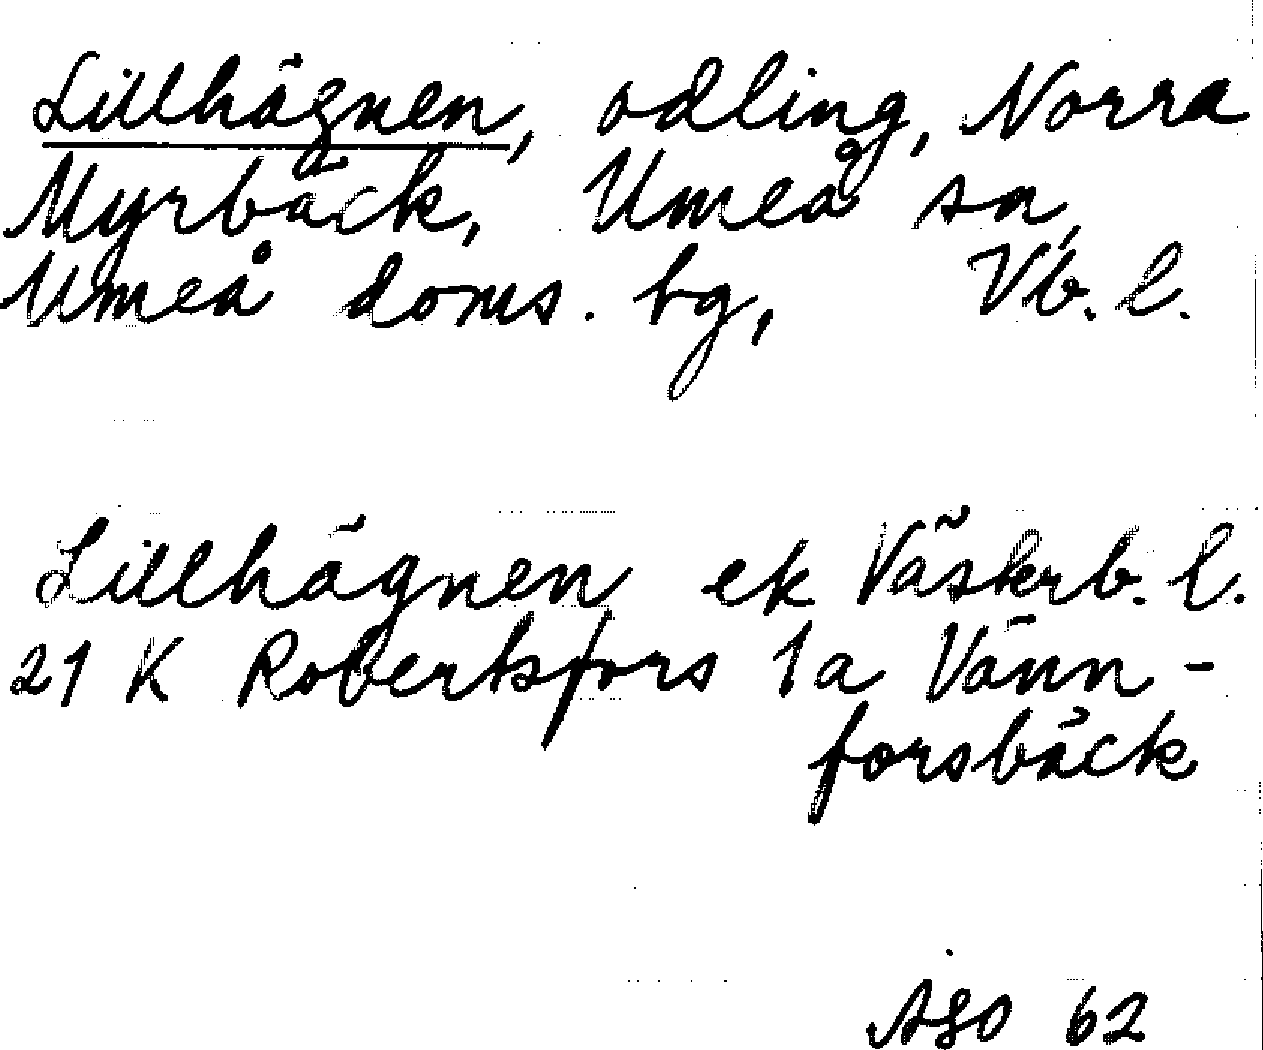 Lillhägnen, odling, Norra
Myrbäck, Umeå sn,
Umeå doms. bg, Vb. l.
Lillhägnen ek Väskrb. l.
21 K Robertsfors 1a Vänn-
forsbäck
ASO 62